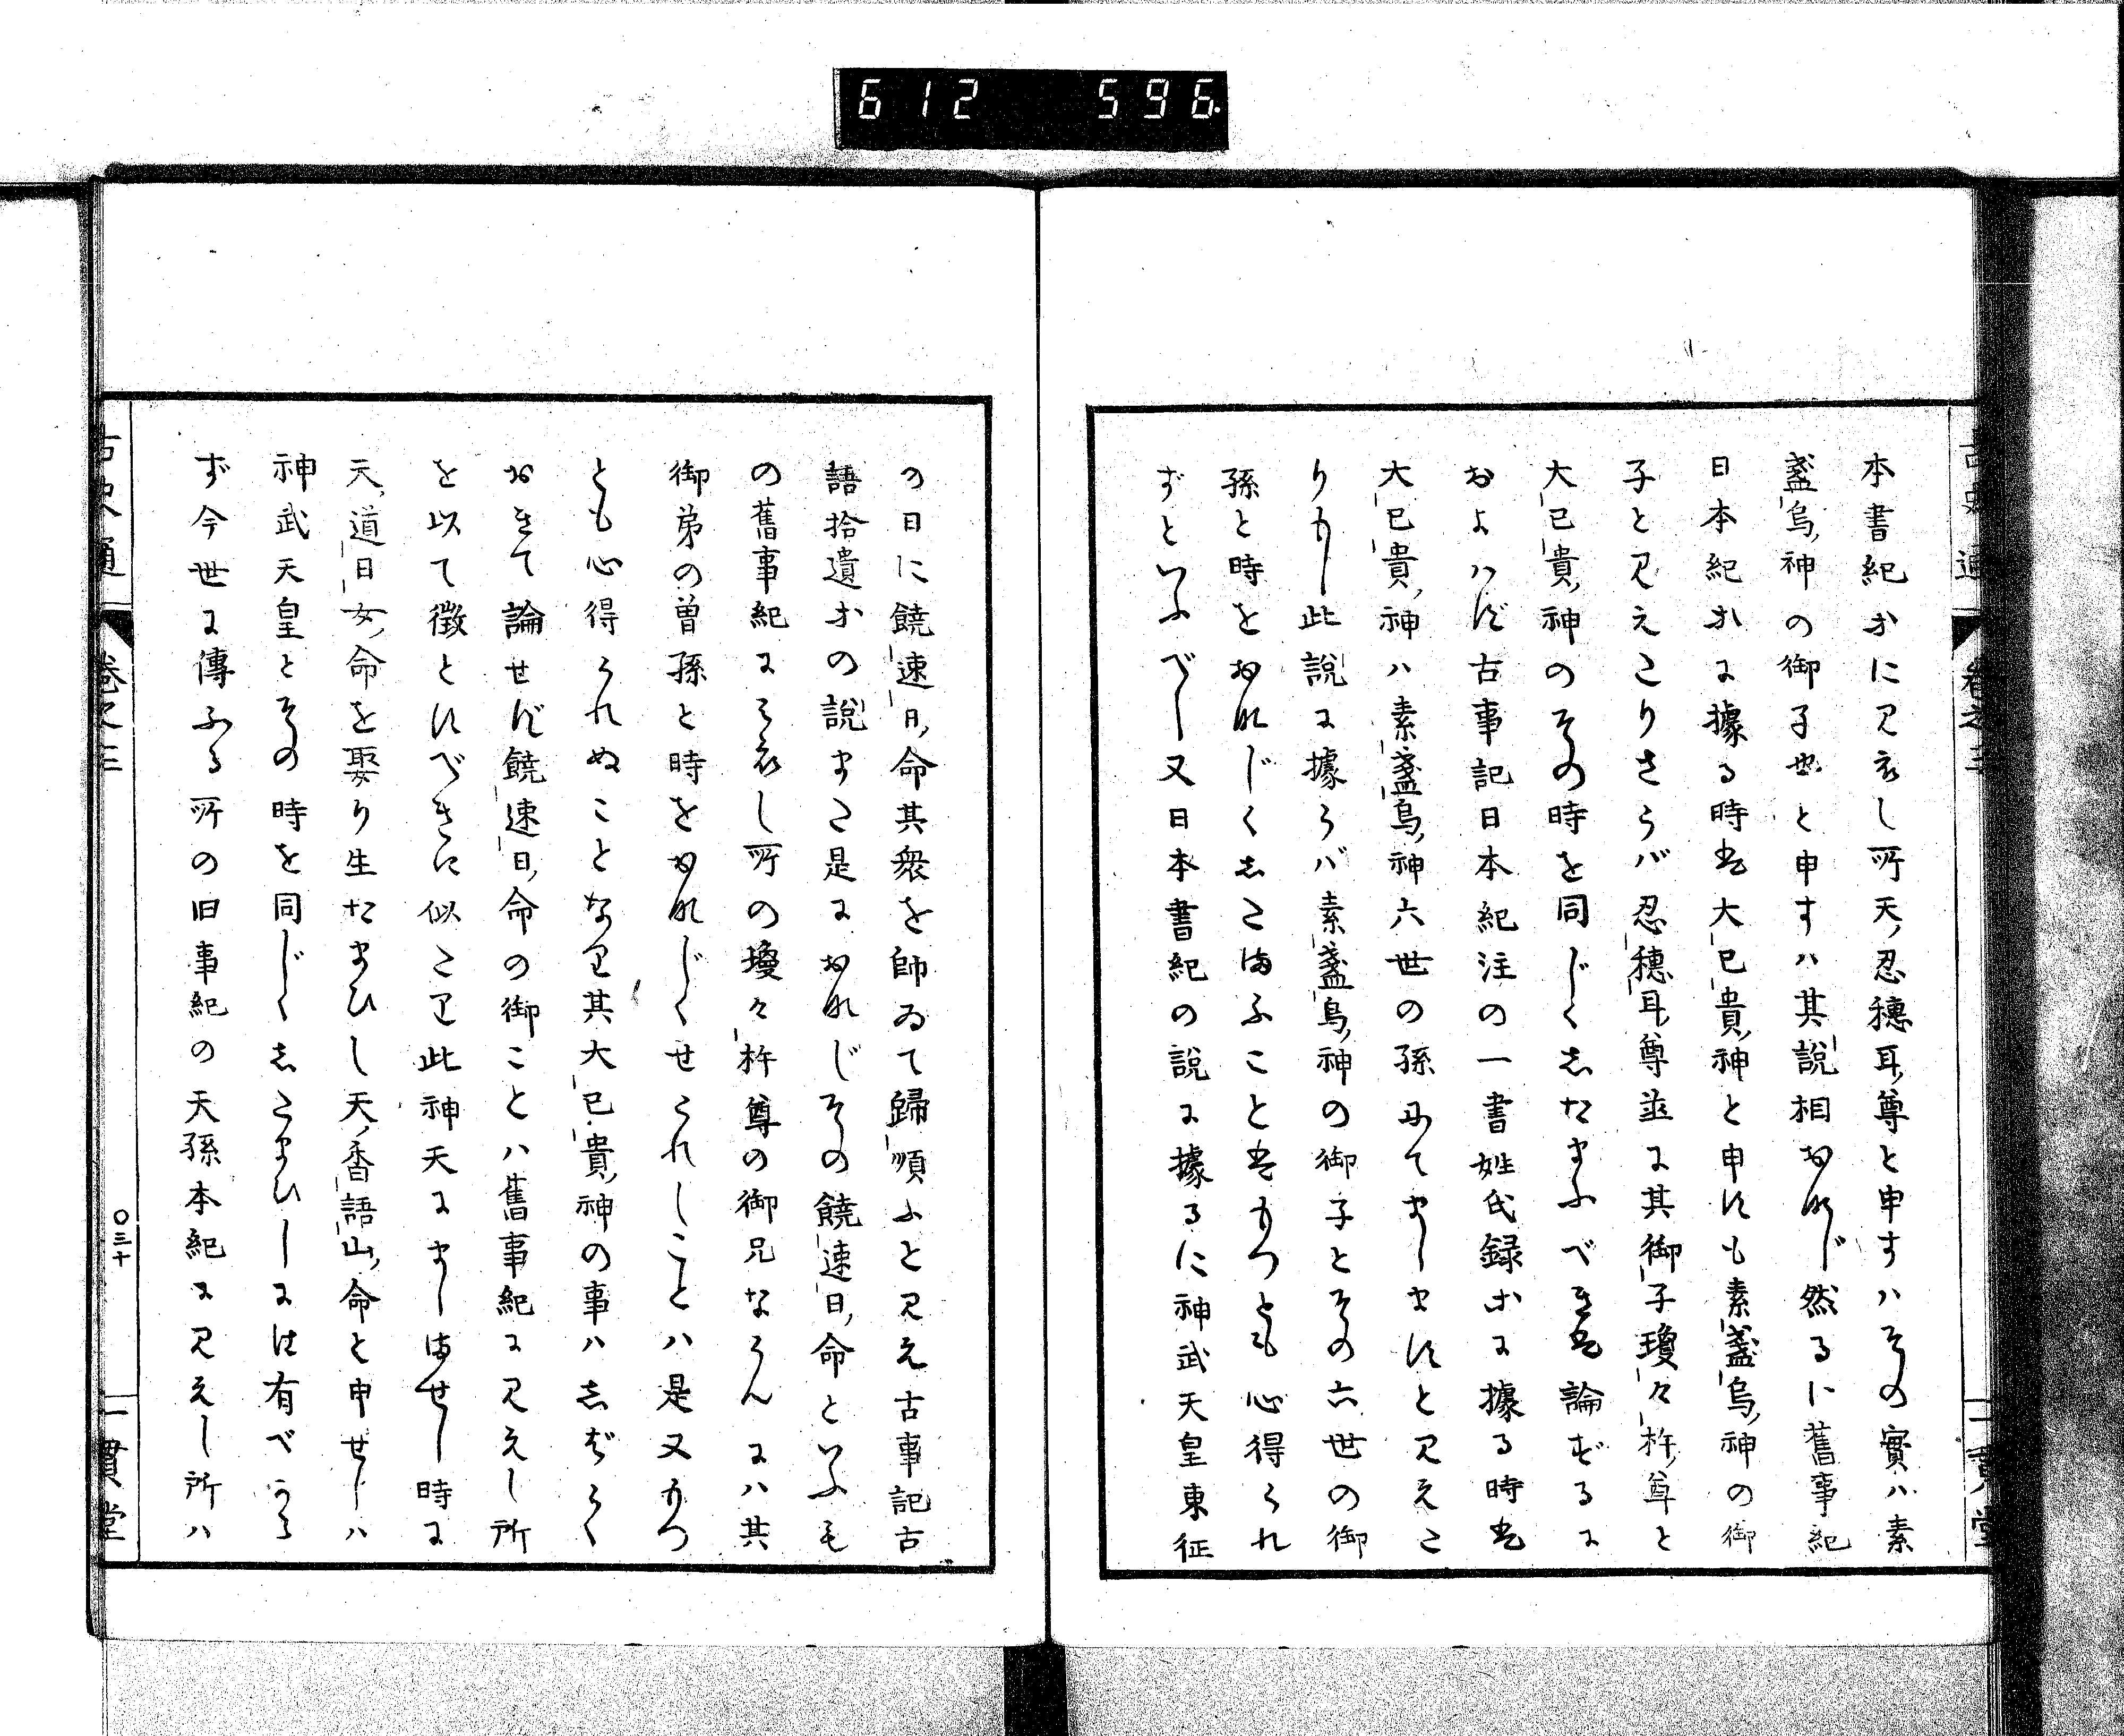 612 596
本書紀ホにみえし所天忍穂耳尊と申すハその實ハ素
盞烏神の御子也と申すハ其説相おなじ然るに舊事紀
日本紀ホに據る時は大已貴神と申すも素盞烏神の御
子と見えたりさらバ忍穂耳尊並に其御子瓊々杵尊と
大已貴神のその時を同じくしたまふべきは論ずるに
およハず古事記日本紀注の一書姓氏録ホに據る時は
大已貴神ハ素盞烏神六世の孫にてましますと見えた
りもし此説に據らバ素盞烏神の御子とその六世の御
孫と時をおなじくしたまふことはもつとも心得られ
ずといふべし又日本書紀の説に據るに神武天皇東征
の日に饒速日命其衆を帥ゐて歸順ふと見え古事記古
語拾遺ホの説また是におなじその饒速日命といふも
の舊事紀にみえし所の瓊々杵尊の御兄ならんにハ其
御弟の曽孫と時をおなじくせられしことハ是又もつ
とも心得られぬことなり其大已貴神の事ハしばらく
おきて論せず饒速日命の御ことハ舊事紀に見えし所
を以て徴とすべきに似たり此神天にましませし時に
天道日女命を娶り生たまひし天香語山命と申せしハ
神武天皇とその時を同じくしたまひしには有べから
ず今世に傳ふる所の旧事紀の天孫本紀に見えし所ハ
古史通
巻之三
〇三十
一貫堂